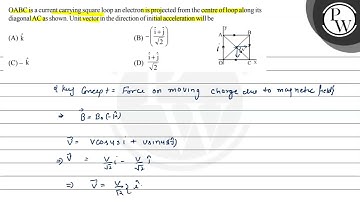 OABC is a current carrying square loop an electron is projected from the centre of loop along its
diagonal AC as shown. Unit vector in the direction of initial acceleration will be
(A) k̂
(B) −((î+ĵ)/√2)
(C) − k̂
(D) (î+ĵ)/√2
A B
O C x
# Key Concept = Force on moving charge due to magnetic field
⇒ B⃗ = B₀ (-k̂)
V⃗ = Vcos45 i + Vsin45 ĵ
⇒ V⃗ = V/√2 i − V/√2 ĵ
⇒ V⃗ = V/√2 { î